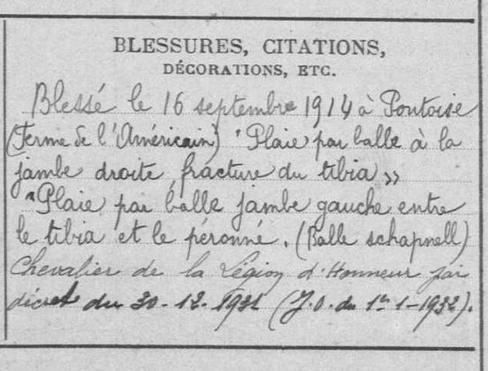 BLESSURES, CITATIONS,
DÉCORATIONS, ETC.
Blessé le 16 septembre 1914 à Pontoise
(Ferme de l'Américain) "Plaie par balle à la
jambe droite fracture du tibia »
"Plaie par balle jambe gauche entre
le tibia et le péronné. (Balle schapnell)
Chevalier de la Légion d'Honneur par
décret du 30-12-1931 (J.O. du 1er 1-1932).